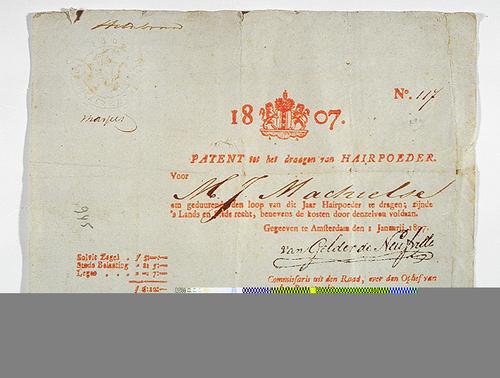 No. 117
1807.
PATENT tot het draagen van HAIRPOEDER.
Voor
M. J. Machielse
om geduurende den loop van dit Jaar Hairpoeder te dragen; zijnde
's Lands en Stads recht, benevens de kosten door denzelven voldaan.
Gegeeven te Amsterdam den 1 Januarij 1807.
van Gelder de Neufville
Commissaris uit den Raad, over den Ophef van
945
Solvit Zegel
Stads Belasting
Leges